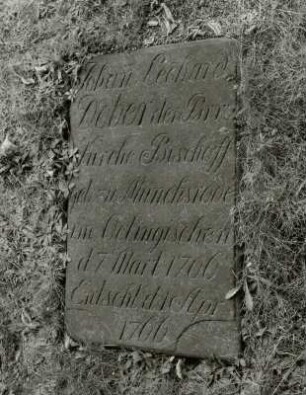 Johan Leonard
Dober der Brr
kirche Bischoff
geb. zu Münchsrode
im Oetingischen
d. 7 Mart. 1706
Entschl. d. 1 Apr
1766